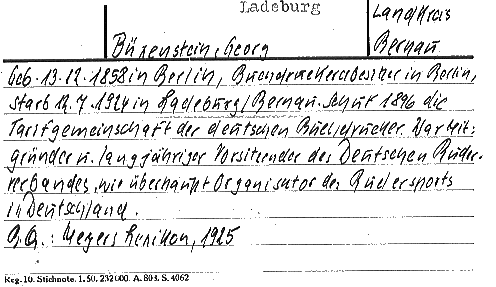 Ladeburg
Landkreis
Bernau
Büxenstein, Georg
Geb. 13.12.1858 in Berlin, Buchdruckereibesitzer in Berlin,
starb 12.7.1924 in Ladeburg/Bernau. Schuf 1896 die
Tarifgemeinschaft der deutschen Buchdrucker. War Mit-
gründer u. langjähriger Vorsitzender des Deutschen Ruder-
verbandes, wie überhaupt Organisator des Rudersports
in Deutschland.
B.Q.: Meyers Lexikon, 1925
Reg. 10. Stichnote. 1. 50. 232 000. A. 803. S. 4062